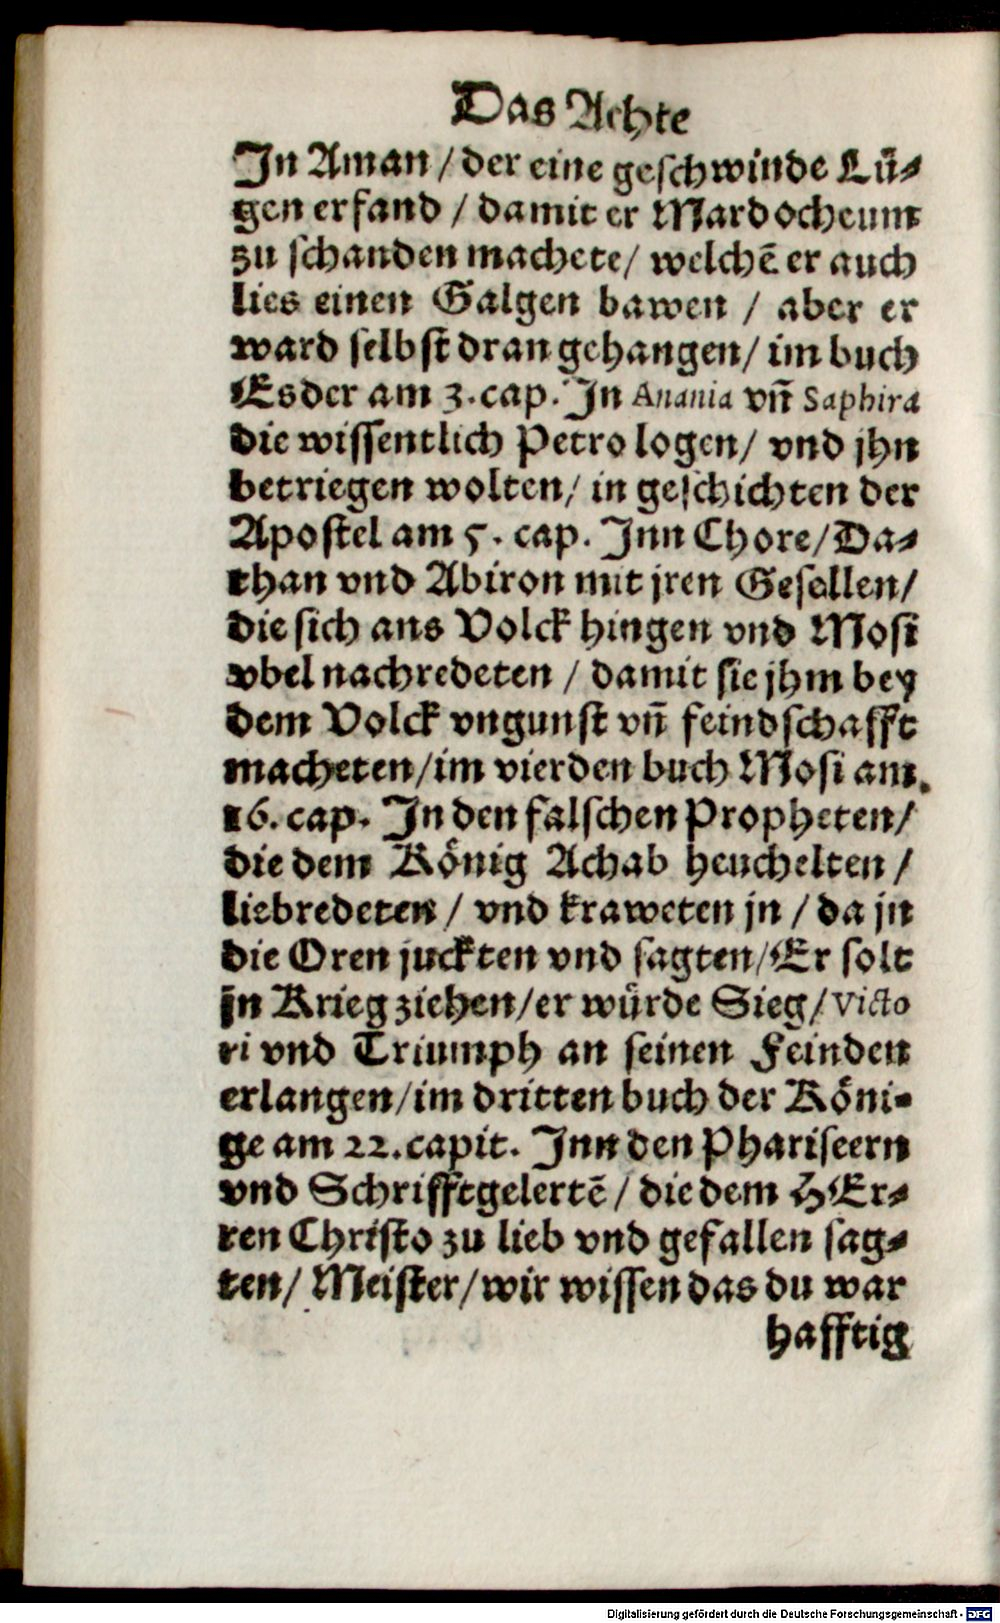 Das Achte
In Aman / der eine geschwinde Lü⸗
gen erfand / damit er Mardocheum
zu schanden machete / welchē er auch
lies einen Galgen bawen / aber er
ward selbst dran gehangen / im buch
Esder am 3. cap. In Anania vñ Saphira
die wissentlich Petro logen / vnd jhn
betriegen wolten / in geschichten der
Apostel am 5. cap. Inn Chore / Da⸗
than vnd Abiron mit jren Gesellen /
die sich ans Volck hingen vnd Mosi
vbel nachredeten / damit sie jhm bey
dem Volck vngunst vñ feindschafft
macheten / im vierden buch Mosi am
16. cap. In den falschen Propheten /
die dem König Achab heuchelten /
liebredeten / vnd kraweten jn / da jn
die Oren juckten vnd sagten / Er solt
jn Krieg ziehen / er würde Sieg / Victo
ri vnd Triumph an seinen Feinden
erlangen / im dritten buch der Köni⸗
ge am 22. capit. Inn den Phariseern
vnd Schrifftgelertē / die dem HEr⸗
ren Christo zu lieb vnd gefallen sag⸗
ten / Meister / wir wissen das du war
hafftig
Digitalisierung gefördert durch die Deutsche Forschungsgemeinschaft - DFG